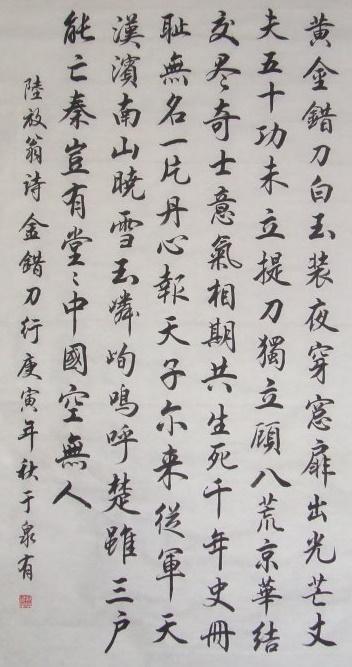 黄金錯刀白玉装夜穿窓扉出光芒丈
夫五十功未立提刀獨立顧八荒京華結
交尽奇士意氣相期共生死千年史冊
耻無名一片丹心報天子尔来從軍天
漢濱南山曉雪玉嶙峋嗚呼楚雖三户
能亡秦豈有堂〻中國空無人
陸放翁诗金錯刀行庚寅年秋于泉有